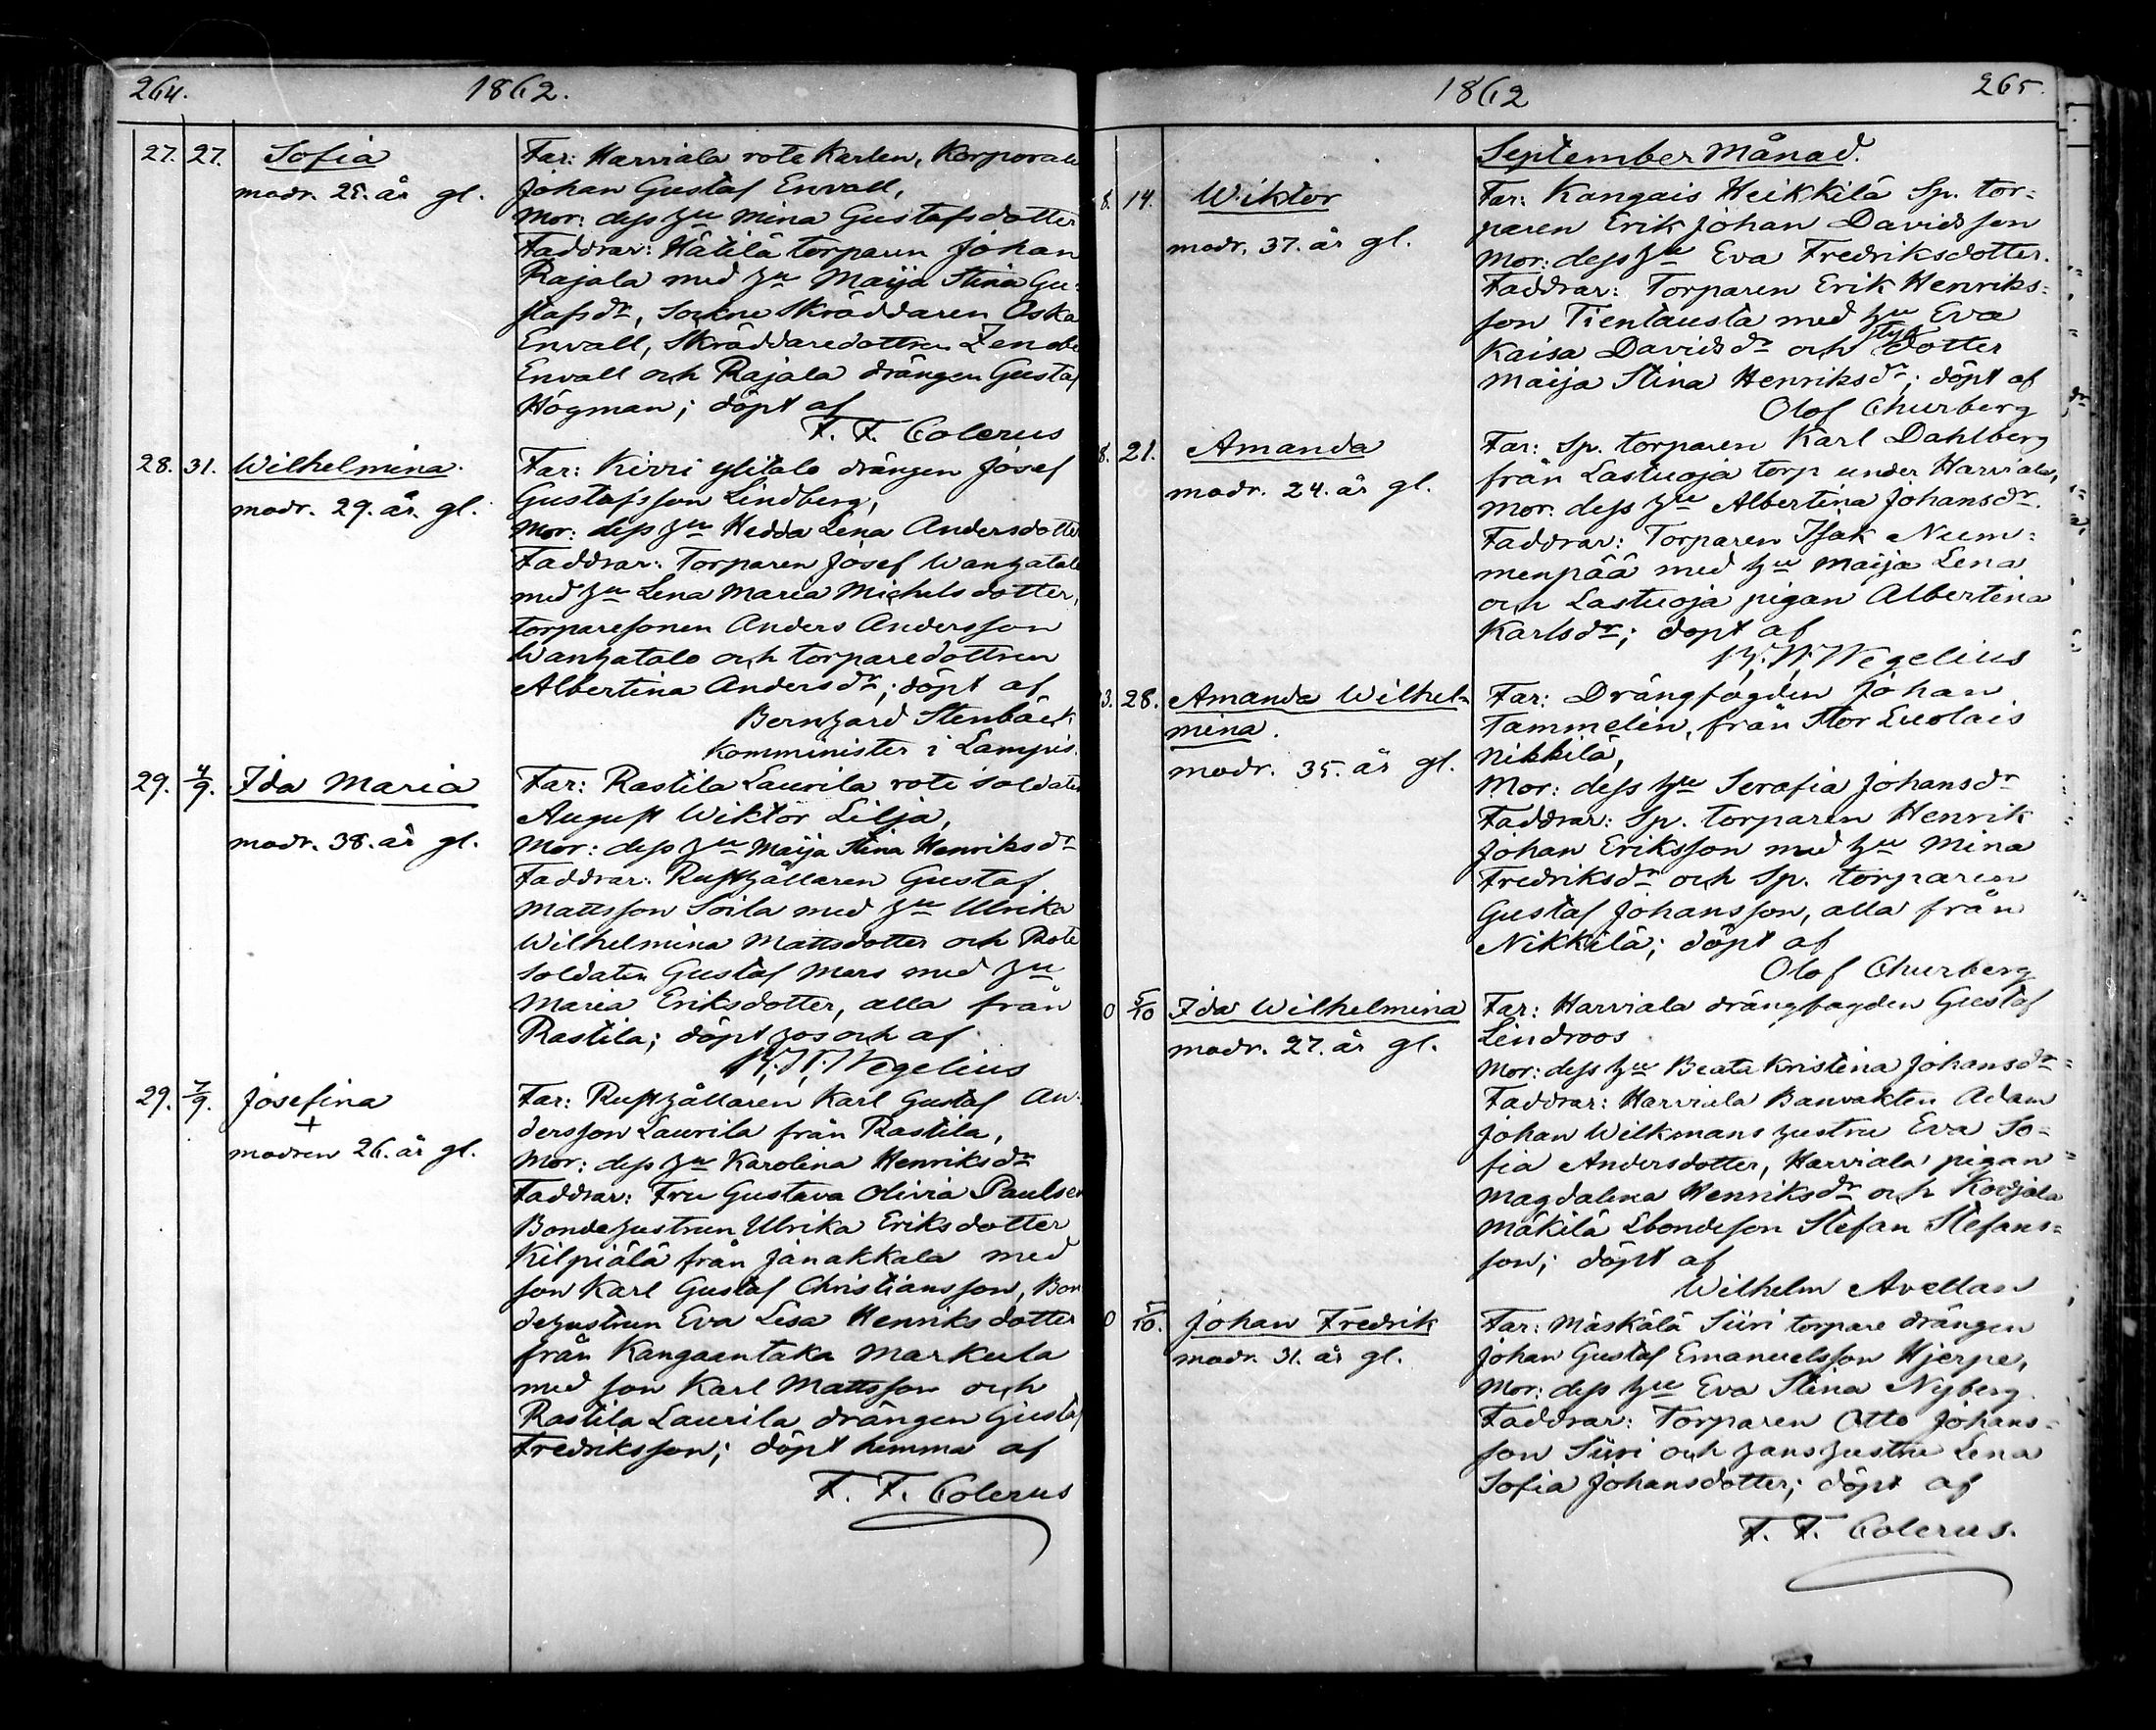 264. 1862.
27. 27. Sofia
modr. 25. år gl.
Far: Harviala rote Karlen, Korporale
Johan Gustaf Envall,
Mor: dess hu Mina Gustafsdotter
Faddrar: Hätilä torparen Johan
Rajala med hu Maija Stina Gu-
stafsdr, Sockne Skräddaren Oska
Envall, Skräddaredottren Zenobi
Envall och Rajala drängen Gustaf
Högman; döpt af
F. F. Colerus
28. 31. Wilhelmina.
modr. 29. år. gl.
Far: Kirri ylitalo drängen Josef
Gustafsson Lindberg,
Mor: dess hu Hedda Lena Andersdotter
Faddrar: Torparen Josef Wanhatalo
med hu Lena Maria Michelsdotter,
torparesonen Anders Andersson
Wanhatalo och torparedottren
Albertina Andersdr; döpt af
Bernhard Stenbäck
Komminister i Lampis.
29. 4/9. Ida Maria
modr. 38. år gl.
Far: Rastila Laurila rote soldaten
August Wiktor Lilja,
Mor: dess hu Maija Stina Henriksdr
Faddrar: Rusthållaren Gustaf
Mattsson Soila med hu Ulrika
Wilhelmina Mattsdotter och Rote
soldaten Gustaf Mars med hu
Maria Eriksdotter, alla från
Rastila; döpt hos och af
K. W. Wegelius
29. 7/9. Josefina
+
modren 26. år gl.
Far: Rusthållaren Karl Gustaf An-
dersson Laurila från Rastila,
Mor: dess hu Karolina Henriksdr
Faddrar: Fru Gustava Olivia Paulsen
Bondehustrun Ulrika Eriksdotter
Kilpiälä från Janakkala med
son Karl Gustaf Christiansson, Bon
dehustrun Eva Lisa Henriksdotter
från Kangaentaka Markula
med son Karl Mattsson och
Rastila Laurila drängen Gustaf
Fredriksson; döpt hemma af
F. F. Colerus
1862 265.
September Månad.
8. 14. Wiktor
modr. 37. år gl.
Far: Kangais Heikkilä Sp. tor-
paren Erik Johan Davidsson
Mor: dess hu Eva Fredriksdotter.
Faddrar: Torparen Erik Henriks-
son Tientausta med hu Eva
Kaisa Davidsdr och styf dotter
Maija Stina Henriksdr; döpt af
Olof Churberg
8. 21. Amanda
modr. 24. år gl.
Far: Sp. torparen Karl Dahlberg
från Lastuoja torp under Harviala,
Mor: dess hu Albertina Johansdr.
Faddrar: Torparen Isak Num-
menpää med hu Maija Lena
och Lastuoja pigan Albertina
Karlsdr; döpt af
K. W. Wegelius
3. 28. Amanda Wilhel-
mina.
modr. 35. år gl.
Far: Drängfogden Johan
Tammelin, från Stor Luolais
Nikkilä,
Mor: dess hu Serafia Johansdr
Faddrar: Sp. torparen Henrik
Johan Eriksson med hu Mina
Fredriksdr och Sp. torparen
Gustaf Johansson, alla från
Nikkilä; döpt af
Olof Churberg
0 5/10 Ida Wilhelmina
modr. 27. år gl.
Far: Harviala drängfogden Gustaf
Lindroos
Mor: dess hu Beata Kristina Johansdr
Faddrar: Harviala Banvakten Adam
Johan Wilkmans hustru Eva So-
fia Andersdotter, Harviala pigan
Magdalena Henriksdr och Kodjala
Mäkilä Ebondeson Stefan Stefans-
son; döpt af
Wilhelm Avellan
0 5/10. Johan Fredrik
modr. 31. år gl.
Far: Mäskälä Siiri torpare drängen
Johan Gustaf Emanuelsson Hjerpe,
Mor: dess hu Eva Stina Nyberg.
Faddrar: Torparen Otto Johans-
son Siiri och hans hustru Lena
Sofia Johansdotter; döpt af
F. F. Colerus.